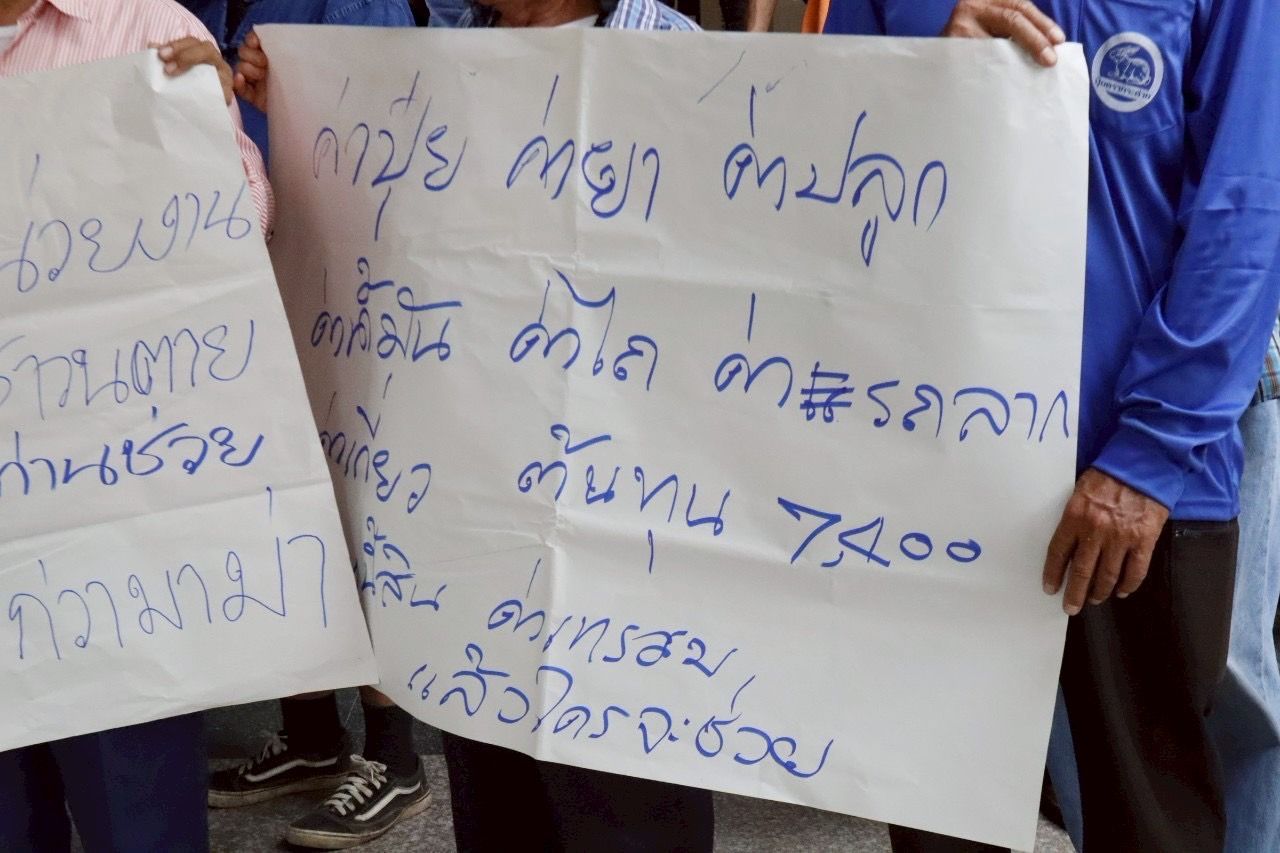 น่วยงาน
ชาวนตาย
ท่านช่วย
กว่ามาม่า
ค่าปุ๋ย ค่ายา ค่าปลูก
ค่าน้ำมัน ค่าไถ ค่ารถลาก
ค่าเกี่ยว ต้นทุน 7,400
หนี้สิน ค่าเทรอม
แล้วใครจะช่วย